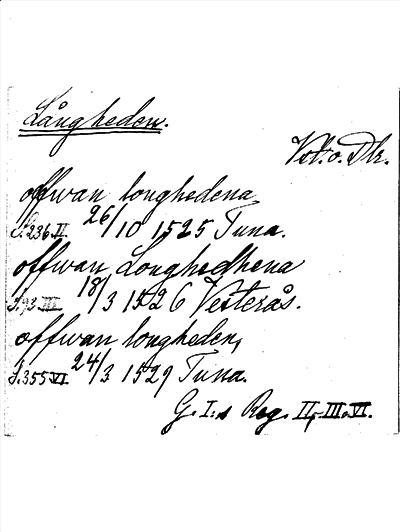 Långheden.
Vstm. o. Dlr.
offwan longhedena
S. 236. II. 26/10 1525 Tuna.
offwan Longhedhena
S. 93 III 18/3 1526 Vesterås.
offwan longheden,
S. 355 VI. 24/3 1529 Tuna.
G. I:s Reg. II, III o. VI.